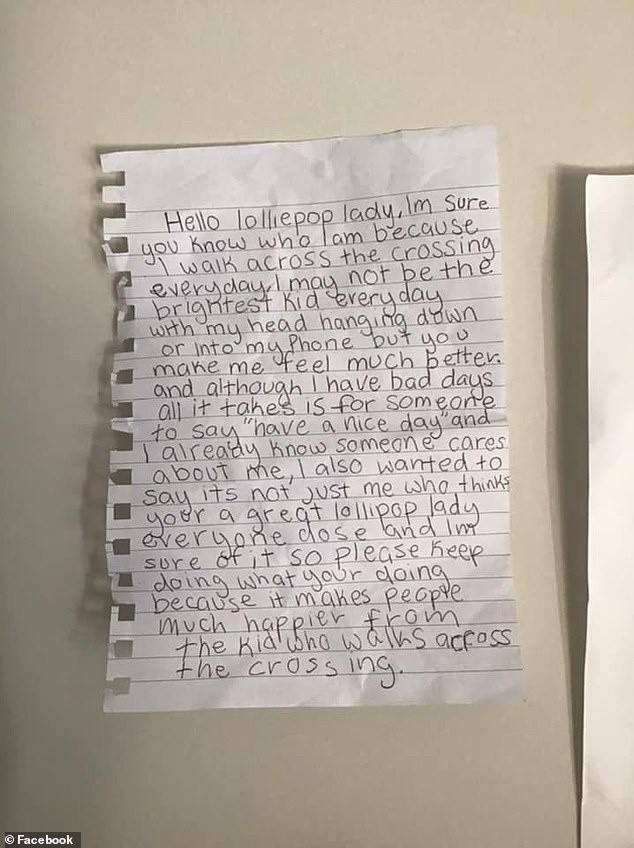 Hello lolliepop lady, Im sure
you know who I am because
I walk across the crossing
everyday, I may not be the
brightest kid everyday
with my head hanging down
or into my phone but you
make me feel much better.
and although I have bad days
all it takes is for someone
to say "have a nice day" and
I already know someone cares
about me, I also wanted to
say its not just me who thinks
your a great lollipop lady
everyone dose and Im
sure of it so please keep
doing what your doing
because it makes people
much happier from
the kid who walks across
the crossing.
© Facebook